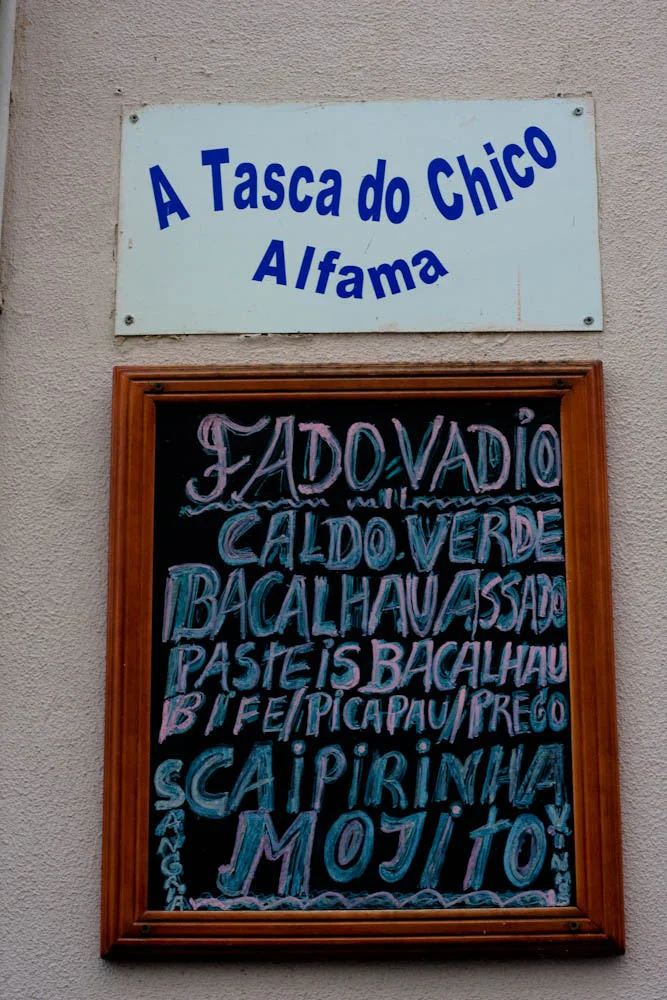 A Tasca do Chico
Alfama
FADO VADIO
CALDO VERDE
BACALHAU ASSADO
PASTEIS BACALHAU
BIFE/PICAPAU/PREGO
CAIPIRINHA
MOJITO
SANGRIA
VINHO